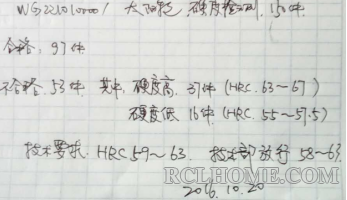 WG221010001 太阳轮,硬度检测,150件.
合格,97件
不合格.53件 其中,硬度高.37件(HRC.63~67)
硬度低 16件(HRC.55~57.5)
技术要求.HRC59~63. 技术部放行58~63.
2016.10.20
RCLHOME.COM